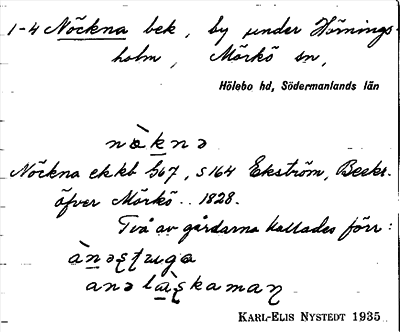 1-4 Nöckna bek, by under Hörnings-
holm, Mörkö sn,
Hölebo hd, Södermanlands län
nö̀knə
Nöckna ekkt 667, s 164 Ekström, Beskr.
öfver Mörkö.. 1828.
Två av gårdarna kallades förr:
KARL-ELIS NYSTEDT 1935